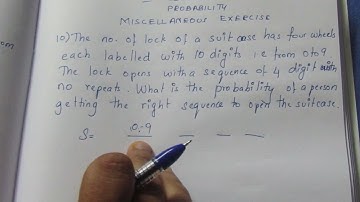 PROBABILITY
MISCELLANEOUS EXERCISE
10) The no. of lock of a suitcase has four wheels
each labelled with 10 digits i.e from 0 to 9.
The lock opens with a sequence of 4 digit with
no repeats. What is the probability of a person
getting the right sequence to open the suitcase.
S= 0,-9